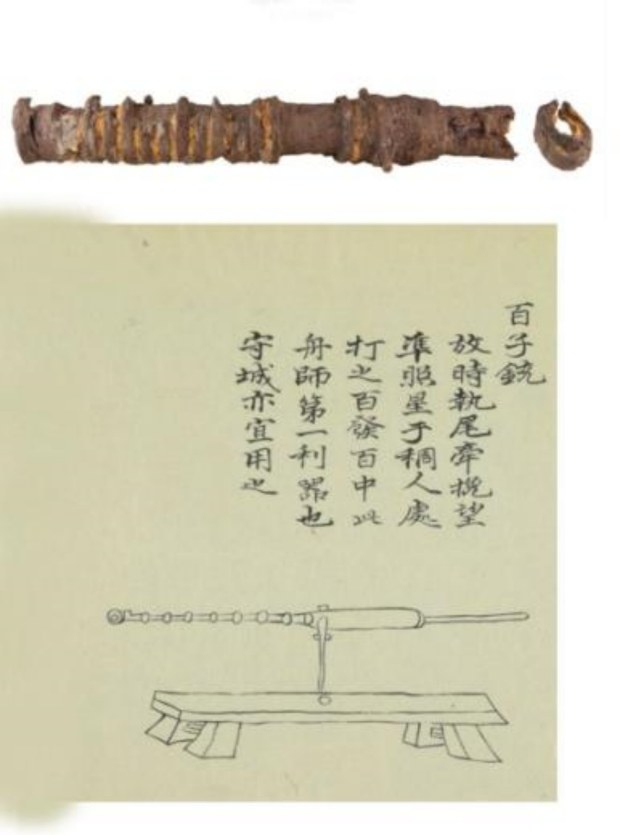 百子銃
放時執尾牽挽望
準照星于稠人處
打之百發百中此
舟師第一利器也
守城亦宜用之